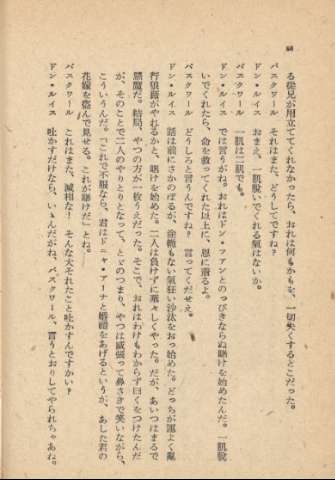 る從兄が用立ててくれなかったら、おれは何もかもを、一切失くするとこだった。
パスクワール　それはまた、どうしてですね？
ドン・ルイス　おまえ、一肌脱いでくれる氣はないか。
パスクワール　一肌は二肌でも。
ドン・ルイス　では言うがね。おれはドン・フアンとのっぴきならぬ賭けを始めたんだ。一肌脱
いでくれたら、命を救ってくれた以上に、恩に着るよ。
パスクワール　どうしろと言うんですね？　言ってくだせえ。
ドン・ルイス　話は前にさかのぼるが、途轍もない氣狂い沙汰をおっ始めた。どっちが運よく亂
行狼藉がやれるかと、賭けを始めた。二人は負けずに華々しくやった。だが、あいつはまるで
惡魔だ。結局、やつの方が一枚うえだった。そこで、おれはわけもわからず因くをつけたんだ
が、そのことで二人のやりとりとなって、とどのつまり、やつは威張って鼻さきで笑いながら、
こういうんだ。「これで不服なら、君はドニャ・アーナと婚禮をあげるというが、あした君の
花嫁を盗んで見せる。これが賭けだ」とね。
パスクワール　これはまた、滅相な！　そんな大それたこと吐かすんですかい？
ドン・ルイス　吐かすだけなら、いゝんだがね、パスクワール、言うとおりしてやられちゃあね。